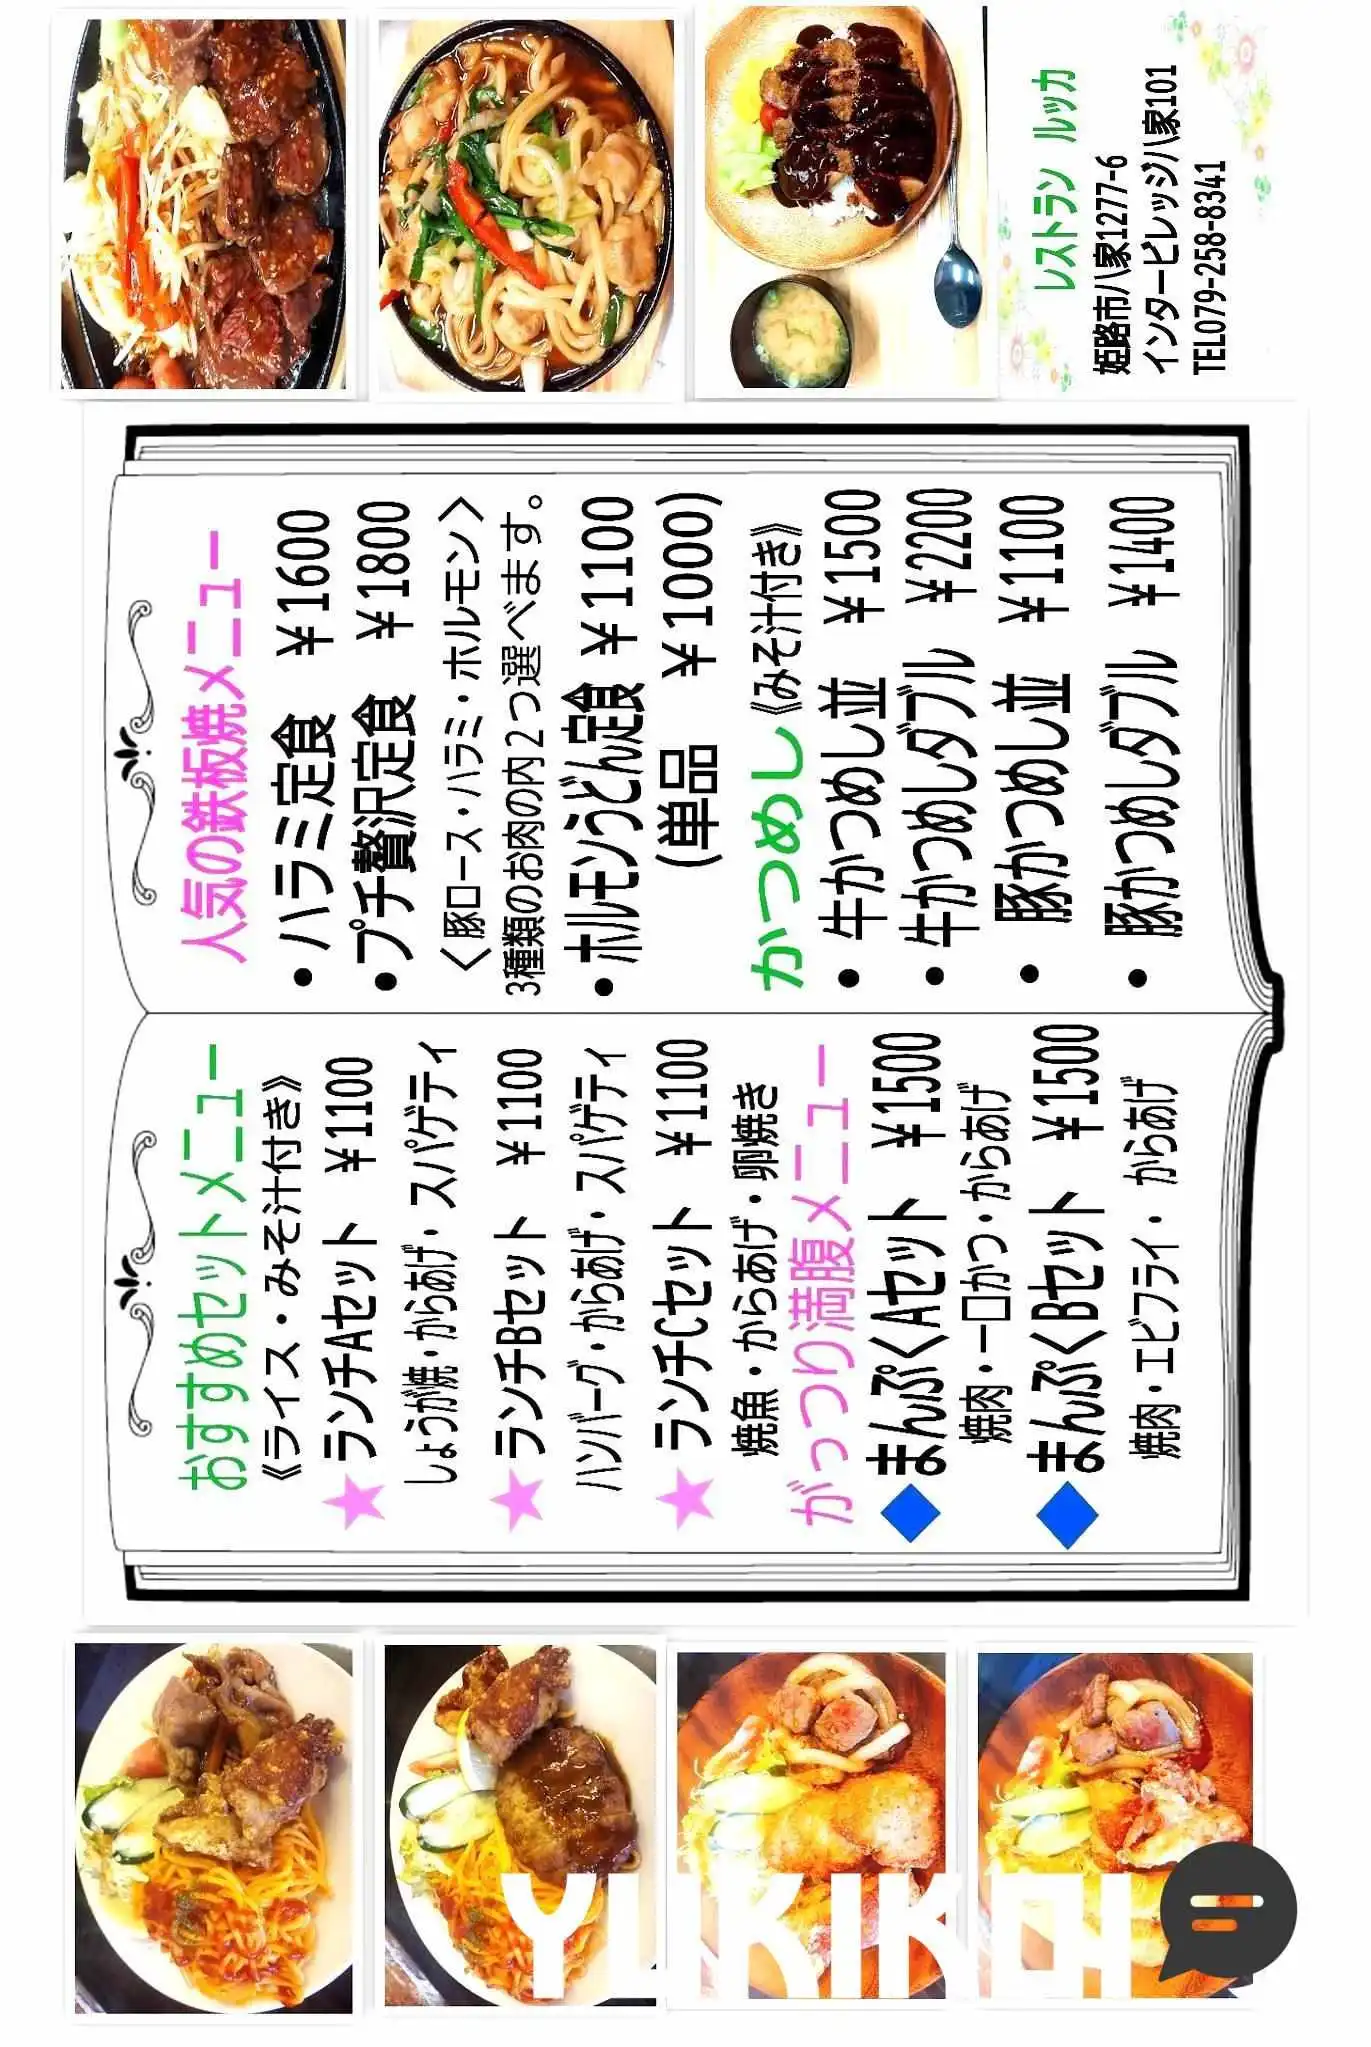 おすすめセットメニュー
《ライス・みそ汁付き》
★ ランチAセット ￥1100
しょうが焼・からあげ・スパゲティ
★ ランチBセット ￥1100
ハンバーグ・からあげ・スパゲティ
★ ランチCセット ￥1100
焼魚・からあげ・卵焼き
がっつり満腹メニュー
◆ まんぷくAセット ￥1500
焼肉・一口かつ・からあげ
◆ まんぷくBセット ￥1500
焼肉・エビフライ・からあげ
人気の鉄板焼メニュー
・ハラミ定食 ￥1600
・プチ贅沢定食 ￥1800
〈豚ロース・ハラミ・ホルモン〉
3種類のお肉の内２つ選べます。
・ホルモンうどん定食 ￥1100
(単品 ￥1000)
かつめし《みそ汁付き》
・牛かつめし並 ￥1500
・牛かつめしダブル ￥2200
・豚かつめし並 ￥1100
・豚かつめしダブル ￥1400
レストラン ルッカ
姫路市八家1277-6
インタービレッジ八家101
TEL079-258-8341
YUKIKOI